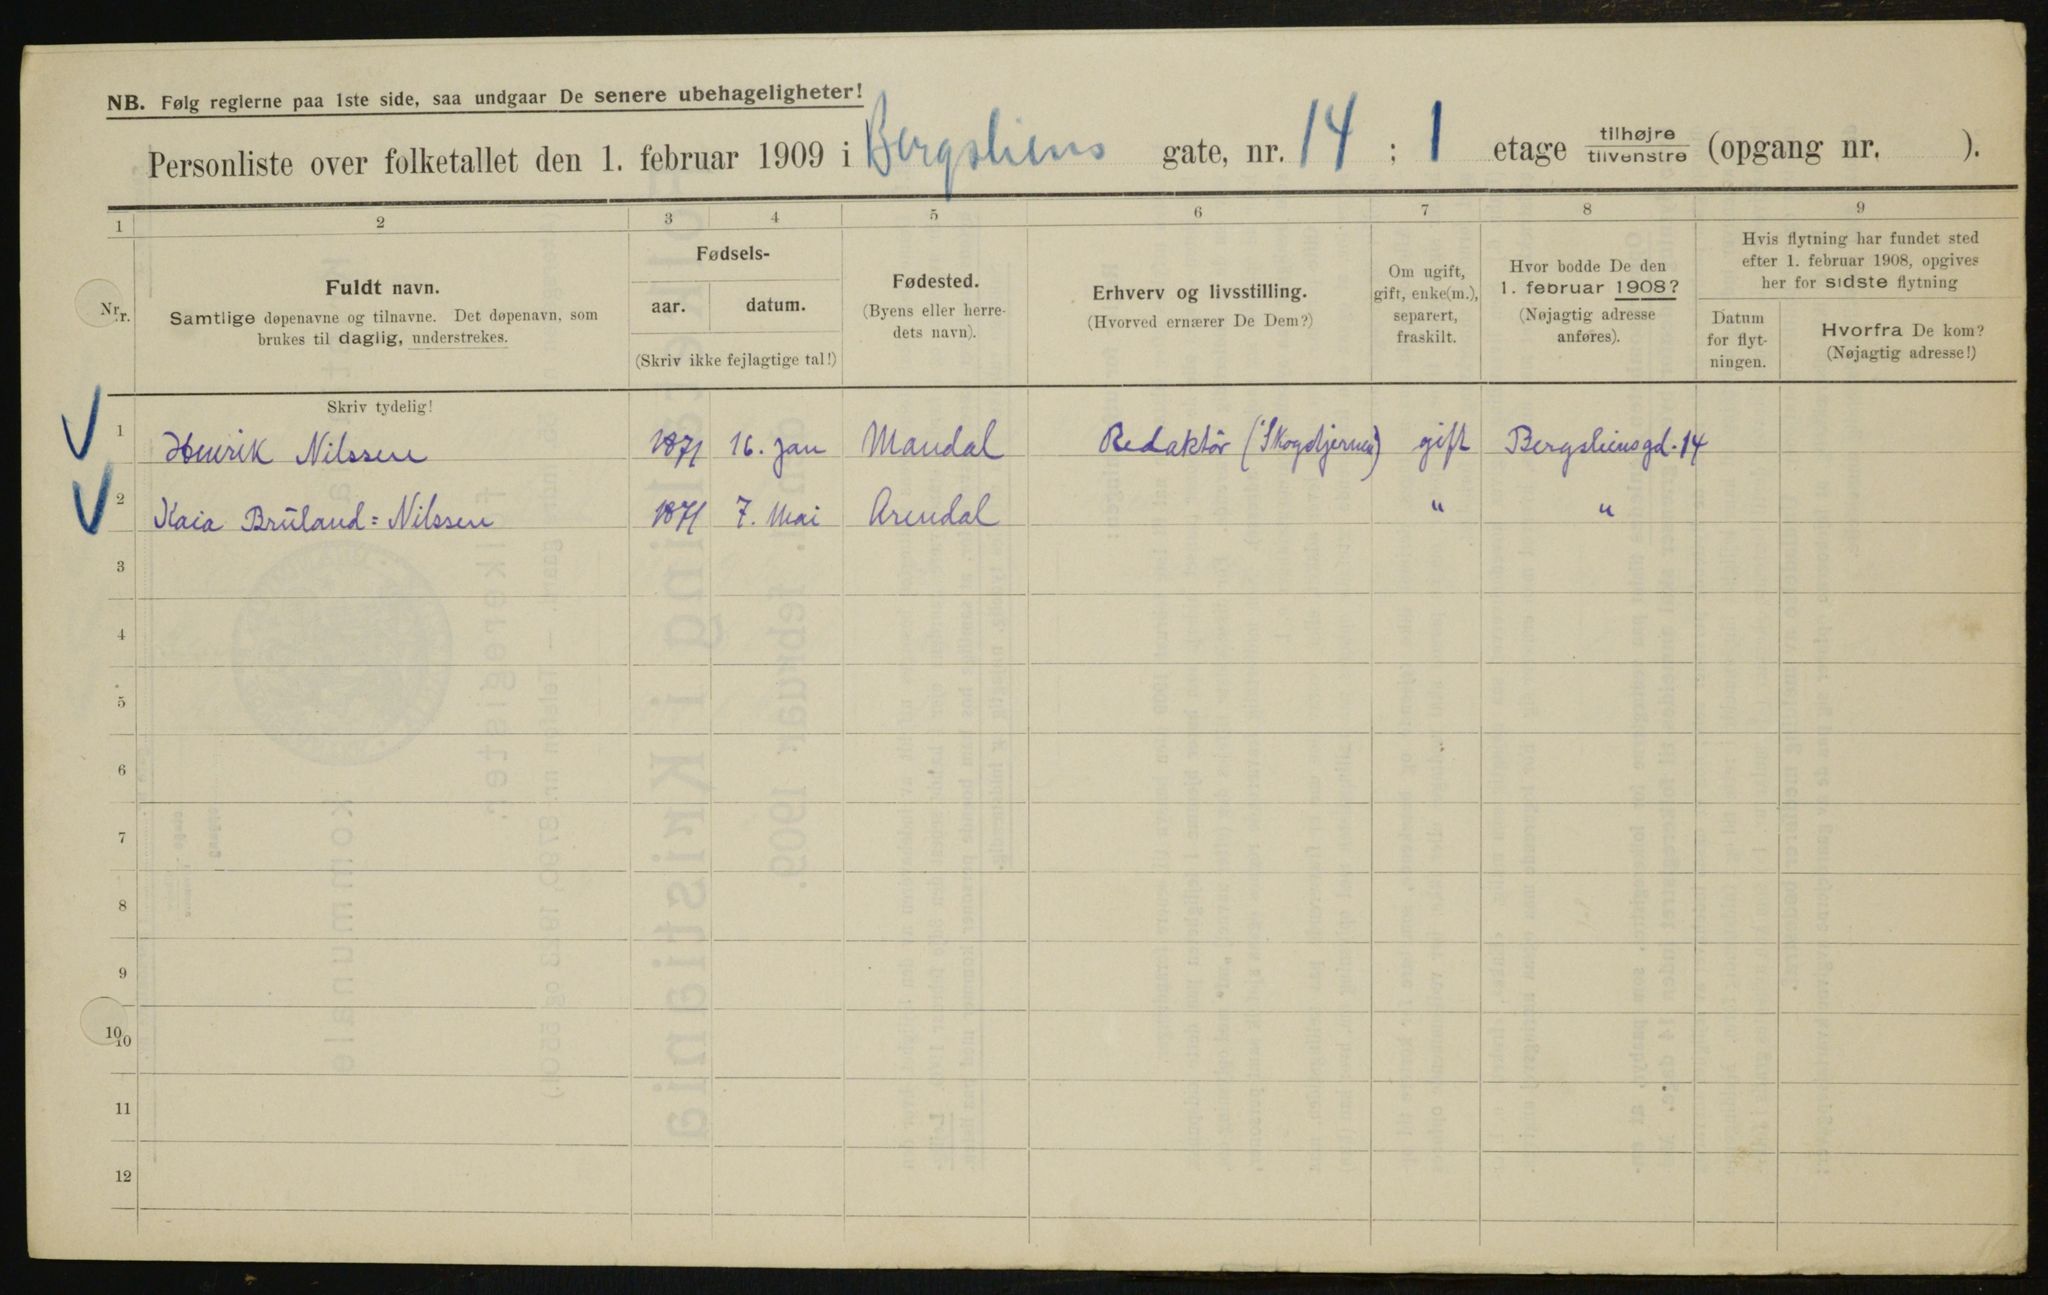 NB. Følg reglerne paa 1ste side, saa undgaar De senere ubehageligheter!
Personliste over folketallet den 1. februar 1909 i Bergsliens gate, nr. 14 ; 1 etage tilhøjre / tilvenstre (opgang nr. ).
1 2 3 4 5 6 7 8 9
Nr.
Fuldt navn.
Samtlige døpenavne og tilnavne. Det døpenavn, som
brukes til daglig, understrekes.
Fødsels-
aar. datum.
(Skriv ikke fejlagtige tal!)
Fødested.
(Byens eller herre-
dets navn).
Erhverv og livsstilling.
(Hvorved ernærer De Dem?)
Om ugift,
gift, enke(m.),
separert,
fraskilt.
Hvor bodde De den
1. februar 1908?
(Nøjagtig adresse
anføres).
Hvis flytning har fundet sted
efter 1. februar 1908, opgives
her for sidste flytning
Datum
for flyt-
ningen.
Hvorfra De kom?
(Nøjagtig adresse!)
Skriv tydelig!
1 Henrik Nilssen 1871 16. Jan Mandal Redaktör (Skogstjernen) gift Bergsliensgd. 14
2 Kaia Bruland=Nilssen 1871 7. Mai Arendal " "
3
4
5
6
7
8
9
10
10
11
12